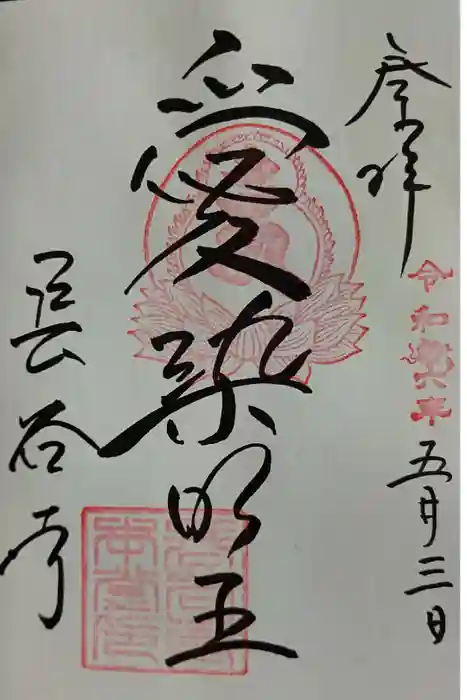 奉拝
令和六年
五月三日
愛染明王
長谷寺